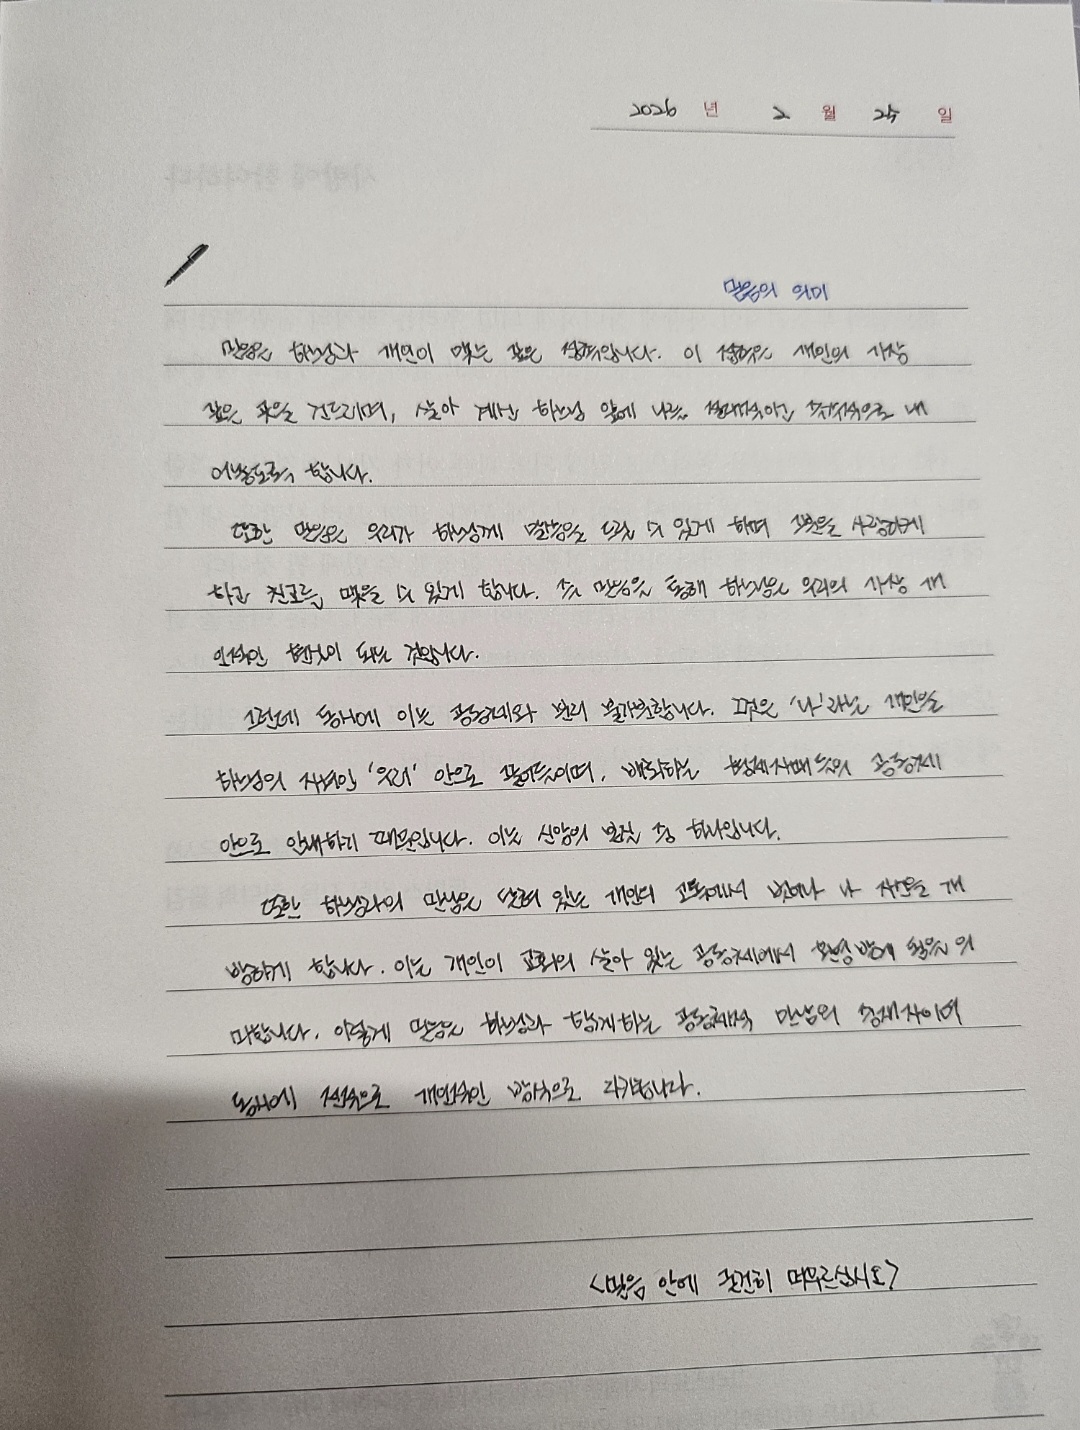 2026 년 2 월 25 일
믿음의 의미
믿음은 하느님과 개인이 맺는 깊은 접촉입니다. 이 접촉은 개인의 가장
깊은 곳을 건드리며, 살아 계신 하느님 앞에 나를 절대적이고 직접적으로 내
어놓도록 합니다.
또한 믿음은 우리가 하느님께 말씀을 드릴 수 있게 하며 그분을 사랑하게
하고 친교를 맺을 수 있게 합니다. 즉 믿음을 통해 하느님은 우리의 가장 개
인적인 무엇이 되는 것입니다.
그런데 동시에 이는 공동체와 분리 불가분합니다. 그것은 '나'라는 개인을
하느님의 자녀인 '우리' 안으로 끌어들이며, 형제자매들의 공동체
안으로 안내하기 때문입니다. 이는 신앙의 본질 중 하나입니다.
또한 하느님과의 만남은 닫혀 있는 개인의 고독에서 벗어나 나 자신을 개
방하게 합니다. 이는 개인이 교회의 살아 있는 공동체에서 환영 받게 됨을 의
미합니다. 이렇게 믿음은 하느님과 함께하는 공동체적 만남의 중재자이며
동시에 전적으로 개인적인 방식으로 다가옵니다.
<믿음 안에 굳건히 머무르십시오>